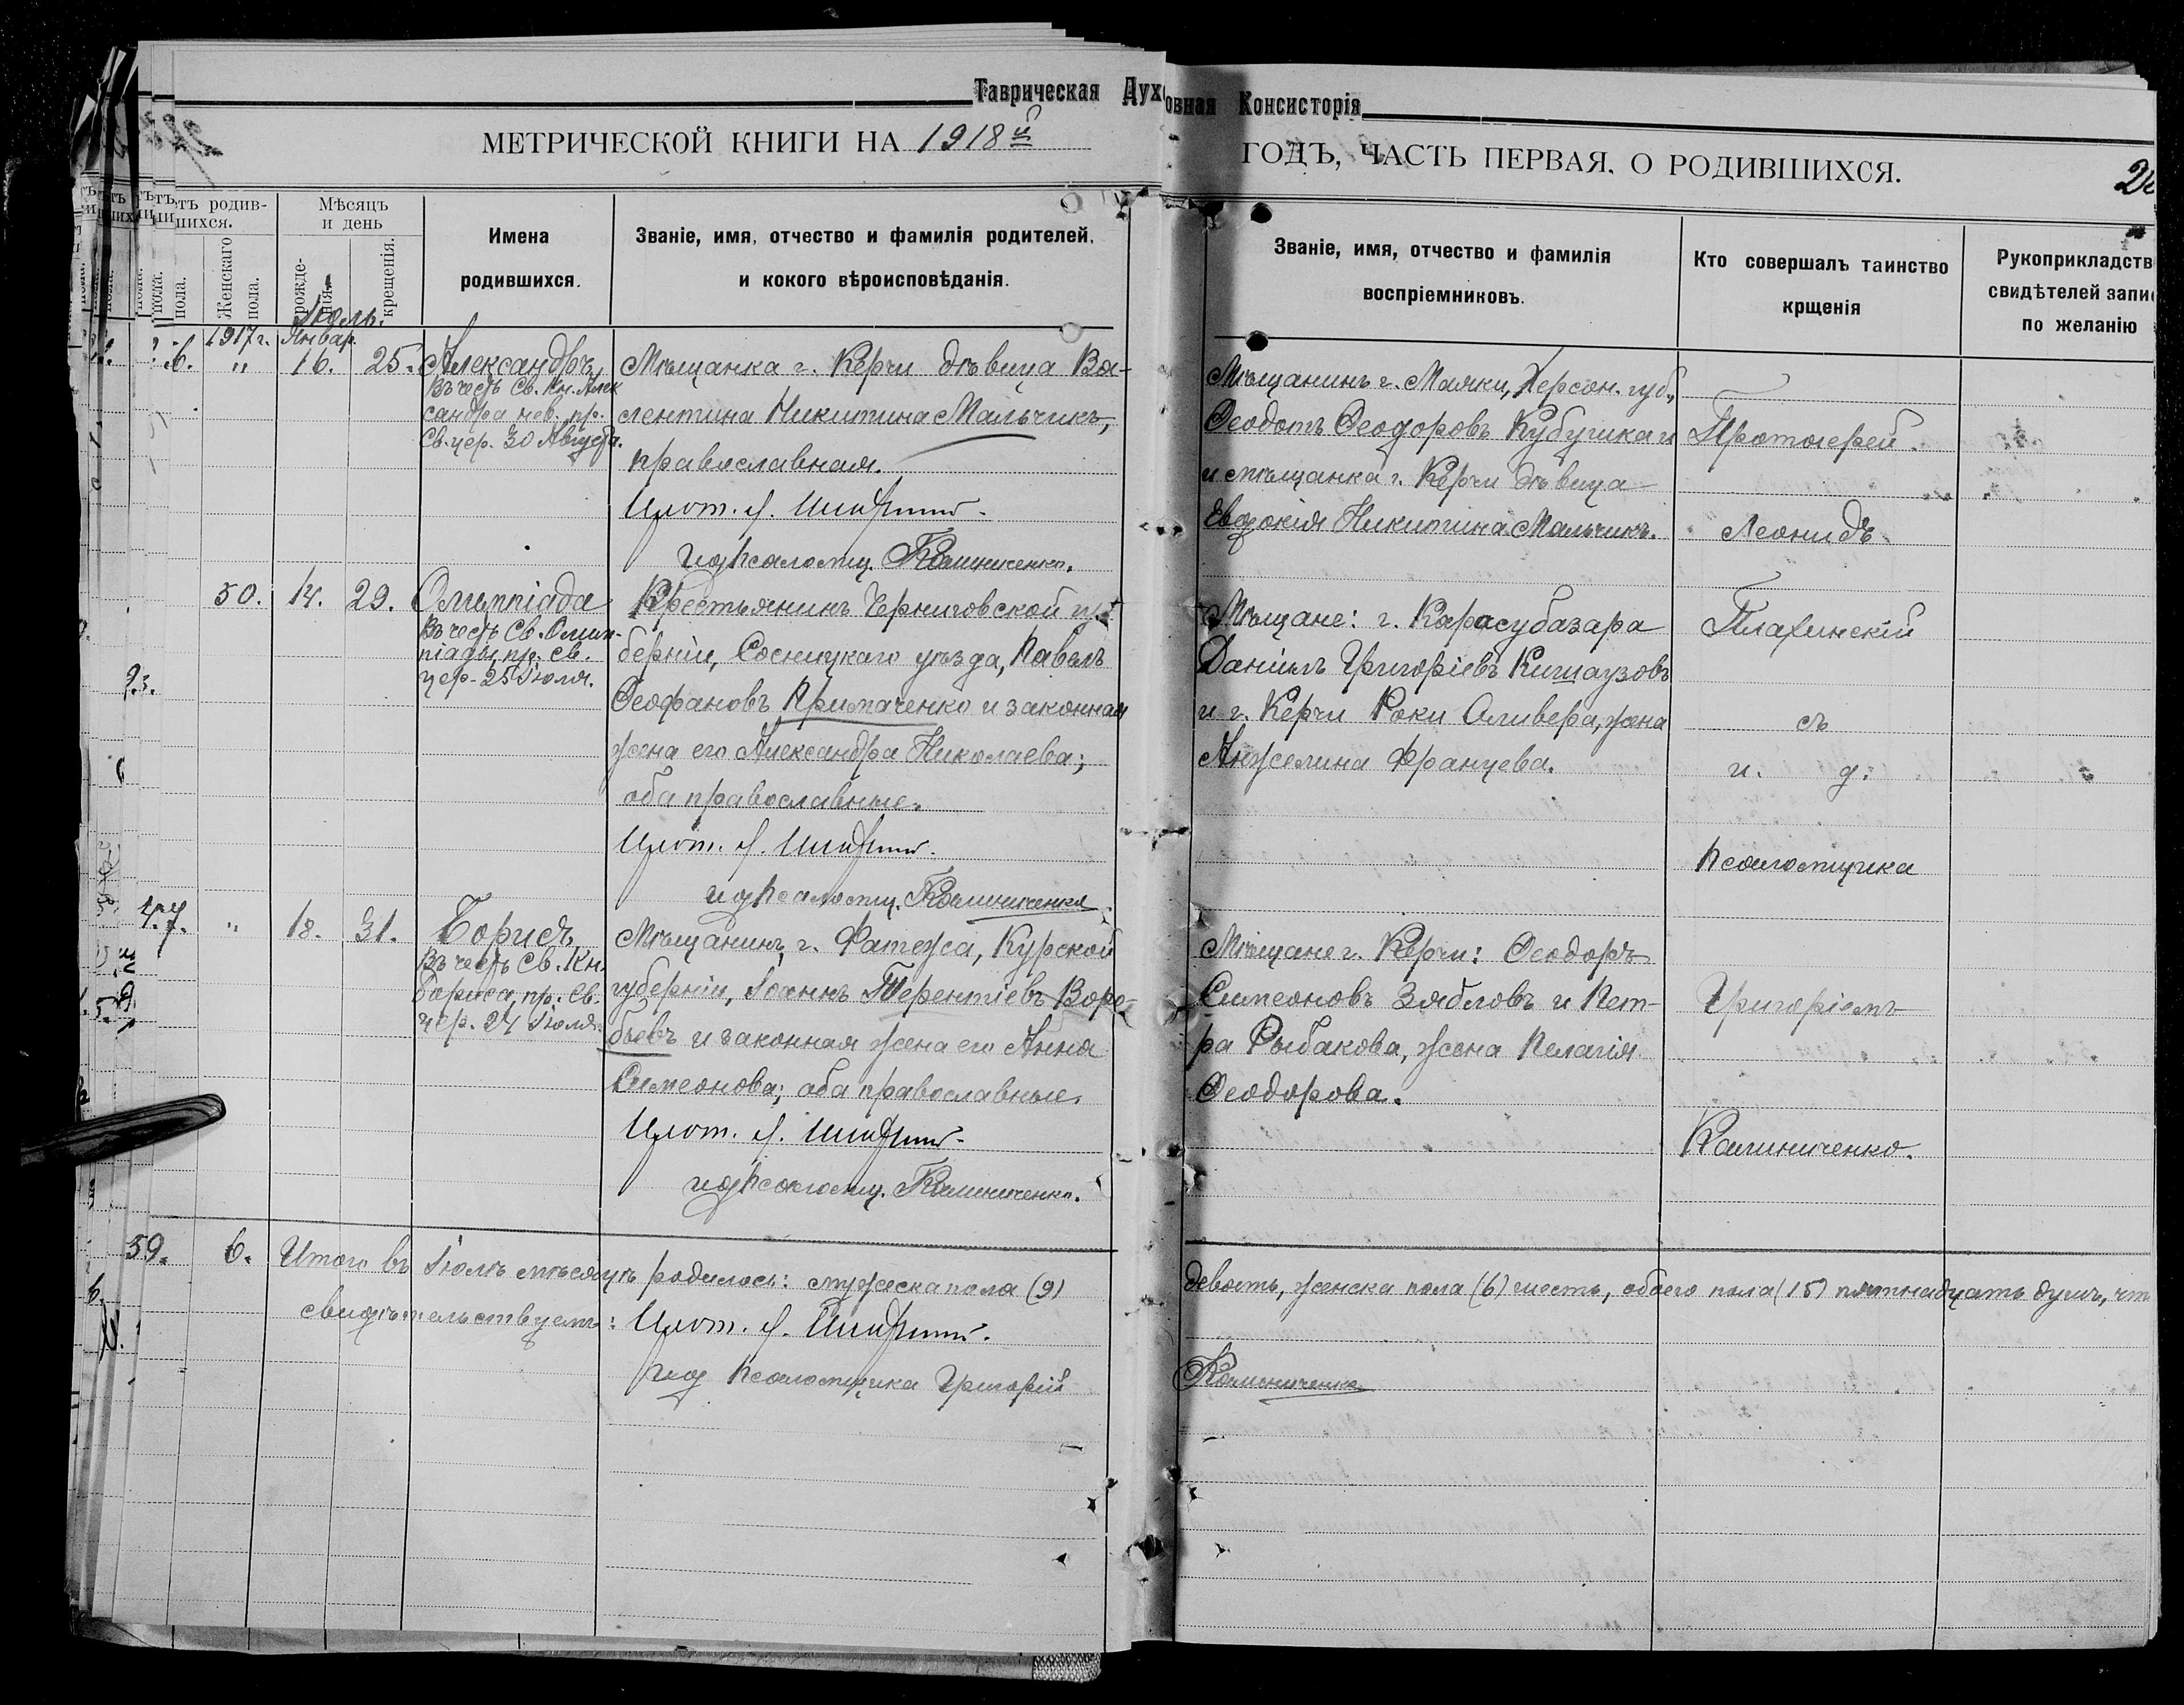 Таврическая Духовная Консисторія
МЕТРИЧЕСКОЙ КНИГИ НА 1918й
ГОДЪ, ЧАСТЬ ПЕРВАЯ, О РОДИВШИХСЯ.
тъ родив-
шихся.
пола.
Женскаго
пола.
Мѣсяцъ
и день
рожде-
нія.
крещенія.
Имена
родившихся.
Званіе, имя, отчество и фамилія родителей,
и кокого вѣроисповѣданія.
Званіе, имя, отчество и фамилія
воспріемниковъ.
Кто совершалъ таинство
крщенія
Рукоприкладств
свидѣтелей запи
по желанію
Іюль.
1917 г. Январ.
6. " 16. 25.
Александръ
Въ честь Св. Кн. Алек
сандра нев. пр.
Св. цер. 30 Августа.
Мѣщанка г. Керчи дѣвица Ва-
лентина Никитина Мальчикъ,
православная.
Прот. Л.
и д псаломщ. Калиниченко.
Мѣщанинъ г. Маяки, Херсон. губ.,
Ѳеодотъ Ѳеодоровъ Кубушка и
и мѣщанка г. Керчи дѣвица
Евдокія Никитина Мальчикъ.
Протоіерей
Леонидъ
50. 14. 29.
Олимпіада
Въ честь Св. Олим-
піады, пр. св.
цер. 25 Іюля.
Крестьянинъ Черниговской гу-
берніи, Сосницкаго уѣзда, Павелъ
Ѳеофановъ Примаченко и законная
жена его Александра Николаева;
оба православные.
Прот. Л.
и д псаломщ. Калиниченко
Мѣщане: г. Карасубазара
Даніилъ Григоріевъ Кишаузовъ
и г. Керчи Роки Оливера, жена
Анжелина Францева.
Плахинскій
съ
и. д.
псаломщика
47. " 18. 31.
Борисъ
Въ честь Св. Кн.
Бориса, пр. св.
цер. 24 Іюля.
Мѣщанинъ г. Фатежа, Курской
губерніи, Іоаннъ Терентіевъ Воро-
бьевъ и законная жена его Анна
Симеонова; оба православные.
Прот. Л.
и д псаломщ. Калиниченко.
Мѣщане г. Керчи: Ѳеодоръ
Симеоновъ Зябловъ и Пет-
ра Рыбакова, жена Пелагія
Ѳеодорова.
Григоріемъ
Калиниченко.
59. 6. Итого въ Іюлѣ мѣсяцѣ родилось: мужеска пола (9) девять, женска пола (6) шесть, обоего пола (15) пятнадцать душъ, чт
свидѣтельствуемъ: Прот. Л.
и д псаломщика Григорій Калиниченко